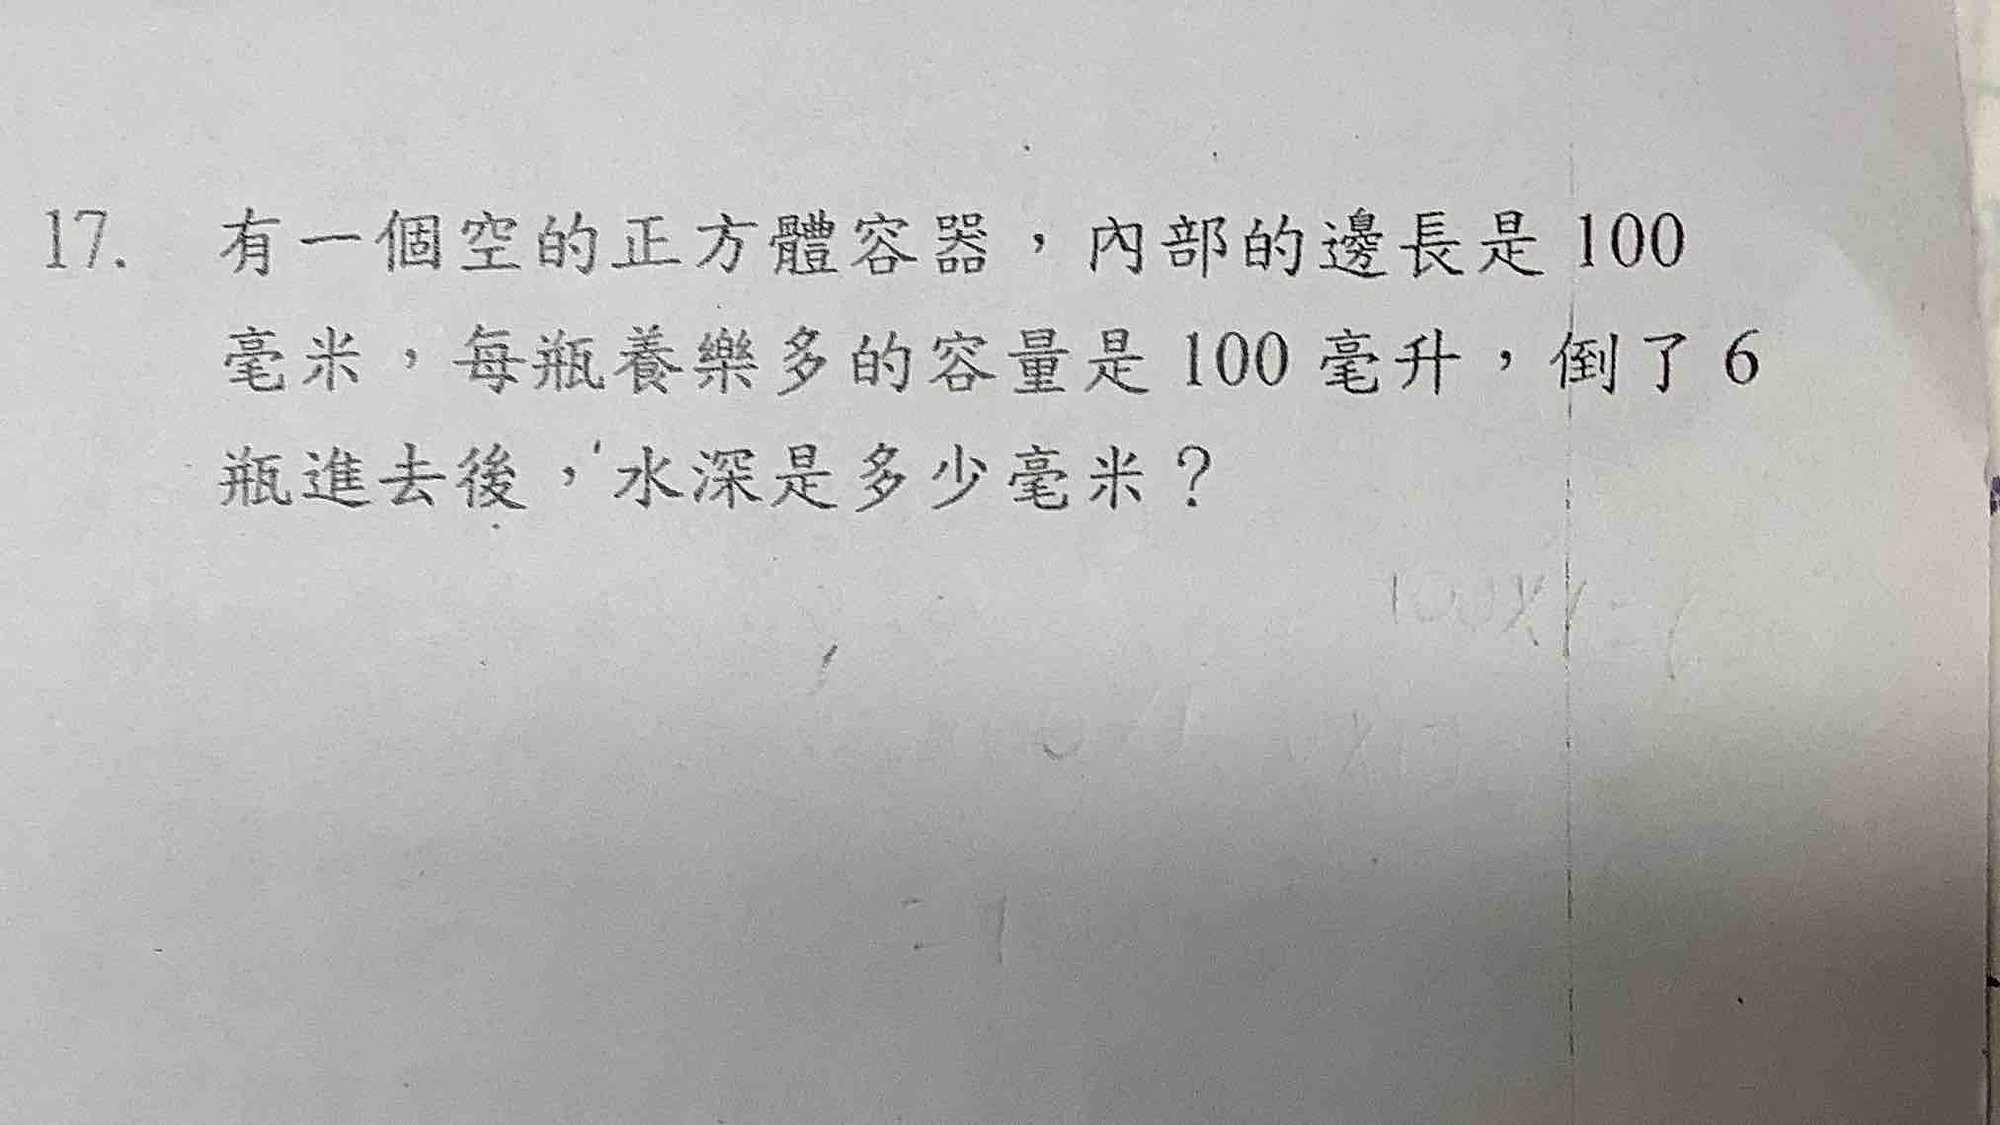 17. 有一個空的正方體容器，內部的邊長是 100
毫米，每瓶養樂多的容量是 100 毫升，倒了 6
瓶進去後，水深是多少毫米？